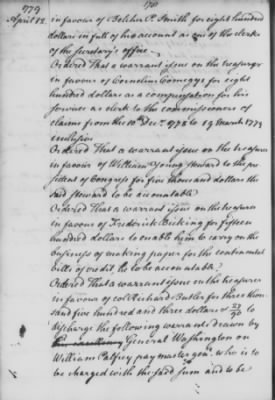 1779
April 12.
in favour of Belcher P. Smith for eight hundred
dollars in full of his account as one of the clerks
of the Secretary's office.
Ordered That a warrant issue on the treasurer
in favour of Cornelius Comegys for eight
hundred dollars as a compensation for his
services as clerk to the commissioners of
claims from the Decr. 1778 to 19 March 1779
inclusive
Ordered That a warrant issue on the treasurer
in favour of William Young steward to the pre
sident of Congress for five thousand dollars the
said steward to be accountable
Ordered That a warrant issue on the treasurer
in favour of Frederick Bicking for fifteen
hundred dollars to enable him to carry on the
business of making paper for the continental
bills of credit, he to be accountable.
Ordered That a warrant issue on the treasurer
in favour of col Richard Butler for three thou
sand five hundred and three dollars to
discharge the following warrants drawn by
General Washington on
William Palfrey pay master genl. who is to
be charged with the said sum and to be